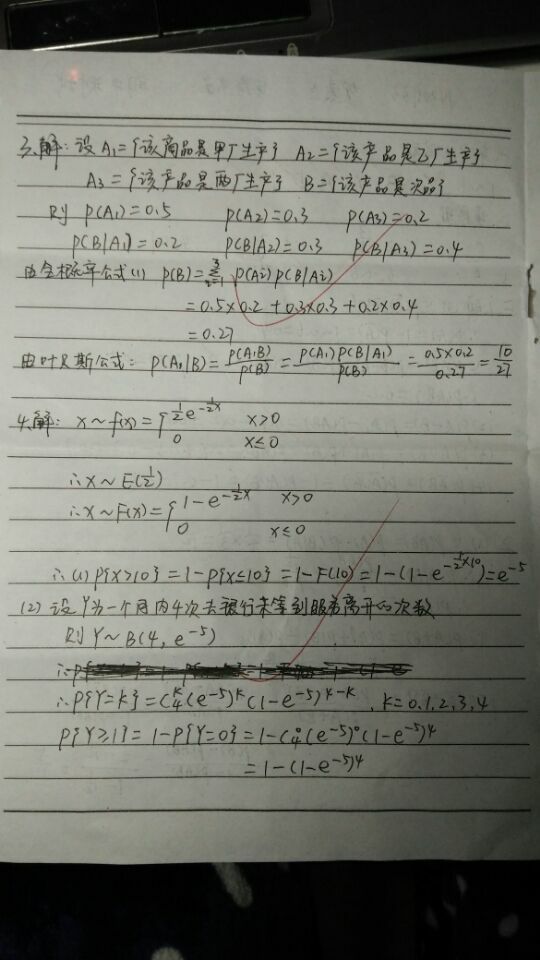 3、解：设 A₁={该商品是甲厂生产} A₂={该产品是乙厂生产}
A₃={该产品是丙厂生产} B={该产品是次品}
则 P(A₁)=0.5 P(A₂)=0.3 P(A₃)=0.2
P(B|A₁)=0.2 P(B|A₂)=0.3 P(B|A₃)=0.4
由全概率公式(1) P(B)=∑³ᵢ₌₁ P(Aᵢ)P(B|Aᵢ)
=0.5×0.2+0.3×0.3+0.2×0.4
=0.27
由叶贝斯公式：P(A₁|B)=P(A₁B)/P(B)=P(A₁)P(B|A₁)/P(B)=0.5×0.2/0.27=10/27
4、解：x~f(x)={½e^(-½x) x>0
0 x≤0
∴x~E(½)
∴x~F(x)={1-e^(-½x) x>0
0 x≤0
∴(1)P{x>10}=1-P{x≤10}=1-F(10)=1-(1-e^(-½×10))=e⁻⁵
(2)设Y为一个月内4次去银行未等到服务离开的次数
则Y~B(4, e⁻⁵)
∴P{Y=K}=C₄ᴷ(e⁻⁵)ᴷ(1-e⁻⁵)⁴⁻ᴷ, K=0,1,2,3,4
P{Y≥1}=1-P{Y=0}=1-C₄⁰(e⁻⁵)⁰(1-e⁻⁵)⁴
=1-(1-e⁻⁵)⁴